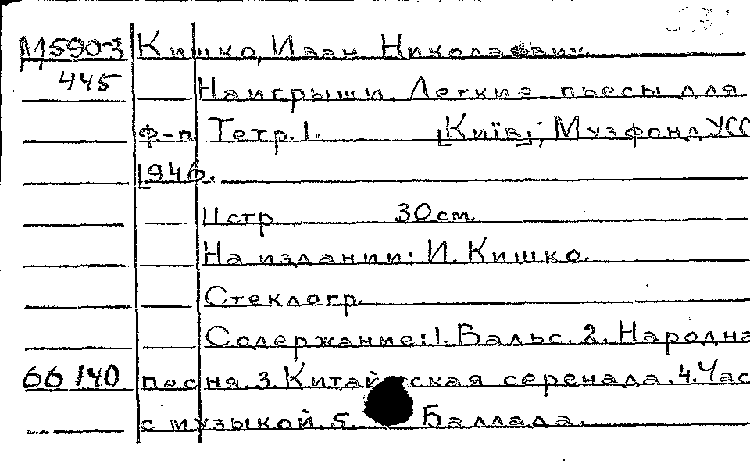 М590-3 Кишко, Иван Николаевич
445 Наигрыши. Легкие пьесы для
ф-п Тетр. 1. [Київ], Музфонд УСС
1946.
11 стр 30 cm
На издании: И. Кишко.
Стеклогр.
Содержание: 1. Вальс. 2. Народна
66 140 песня. 3. Китайская серенада. 4. Час
с музыкой. 5. Баллада.